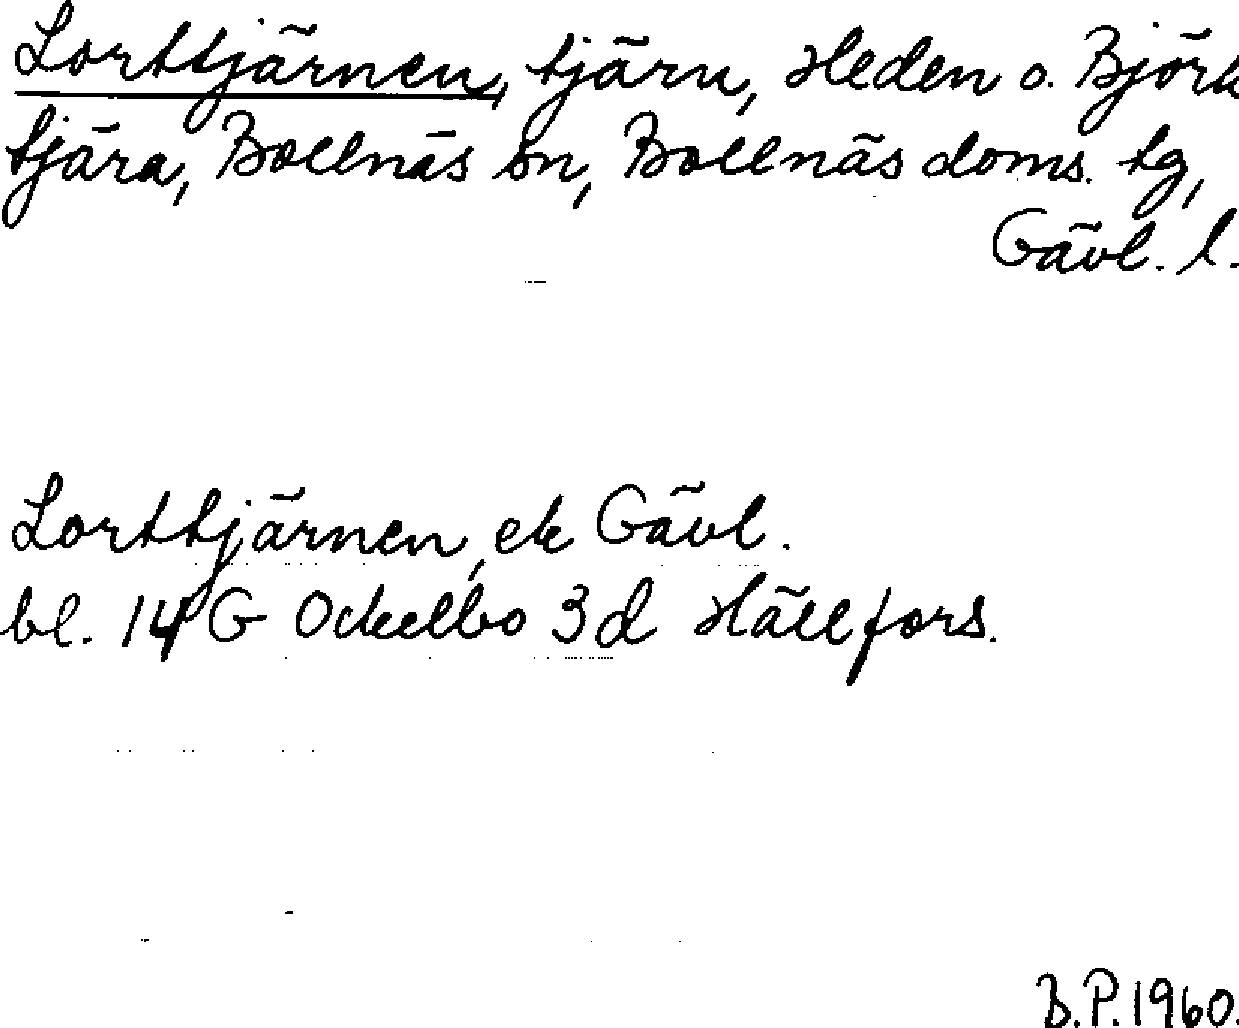 Lorttjärnen, tjärn, Heden o. Björk
tjära, Bollnäs sn, Bollnäs doms. tg,
Gävl. l.
Lorttjärnen, ek Gävl.
bl. 14 G Ockelbo 3 d Hällfors.
B.P. 1960.